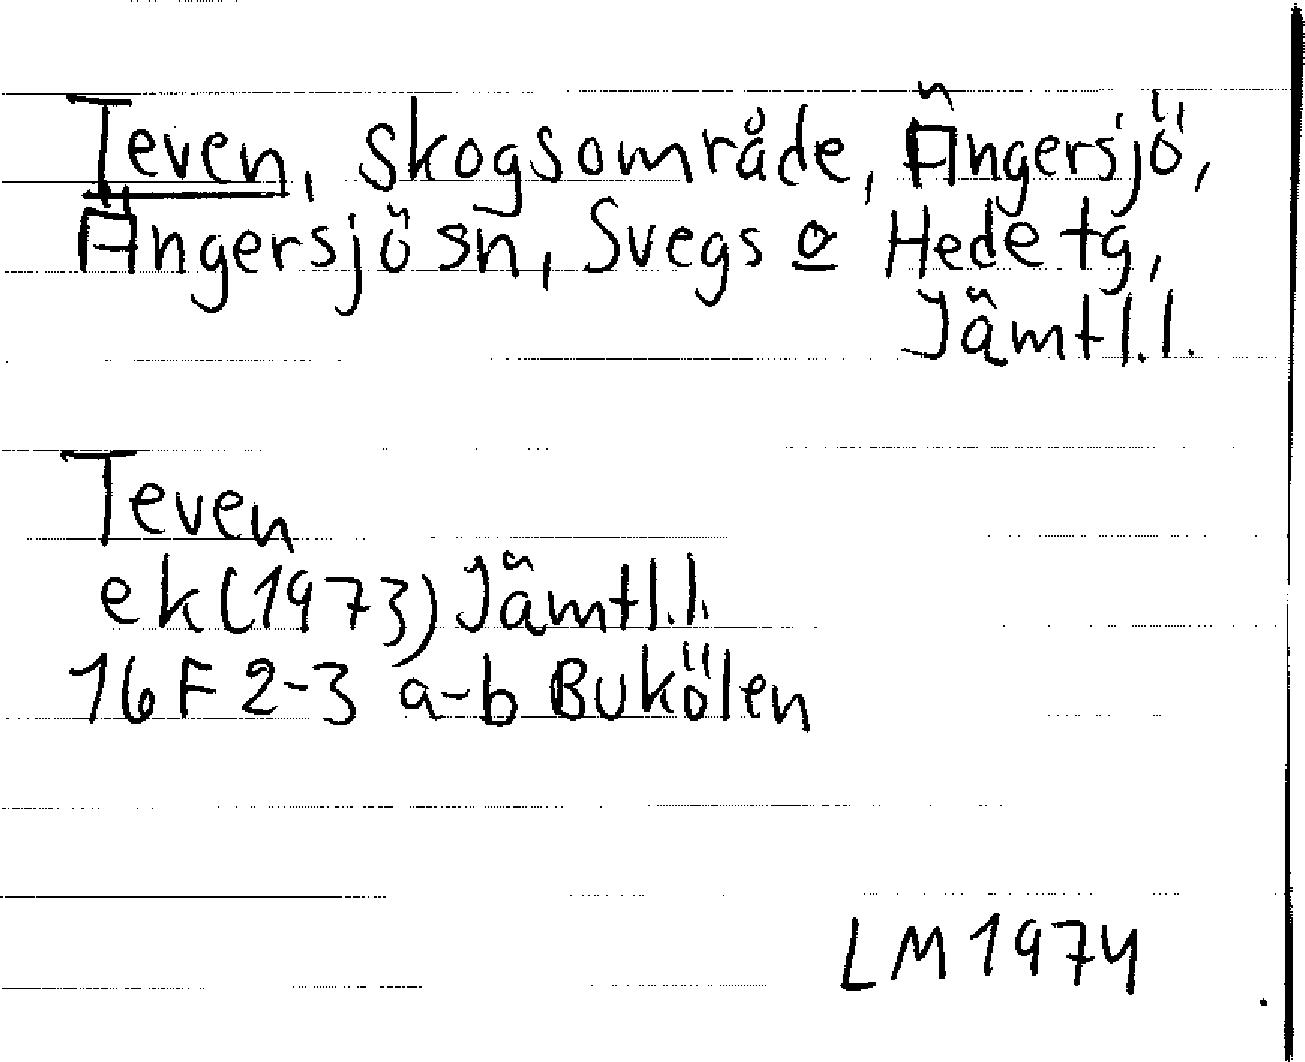 Teven, skogsområde, Ängersjö,
Ängersjö sn, Svegs o Hede tg,
Jämtl.l.
Teven
ek (1973) Jämtl.l.
16 F 2-3 a-b Bukölen
LM 1974